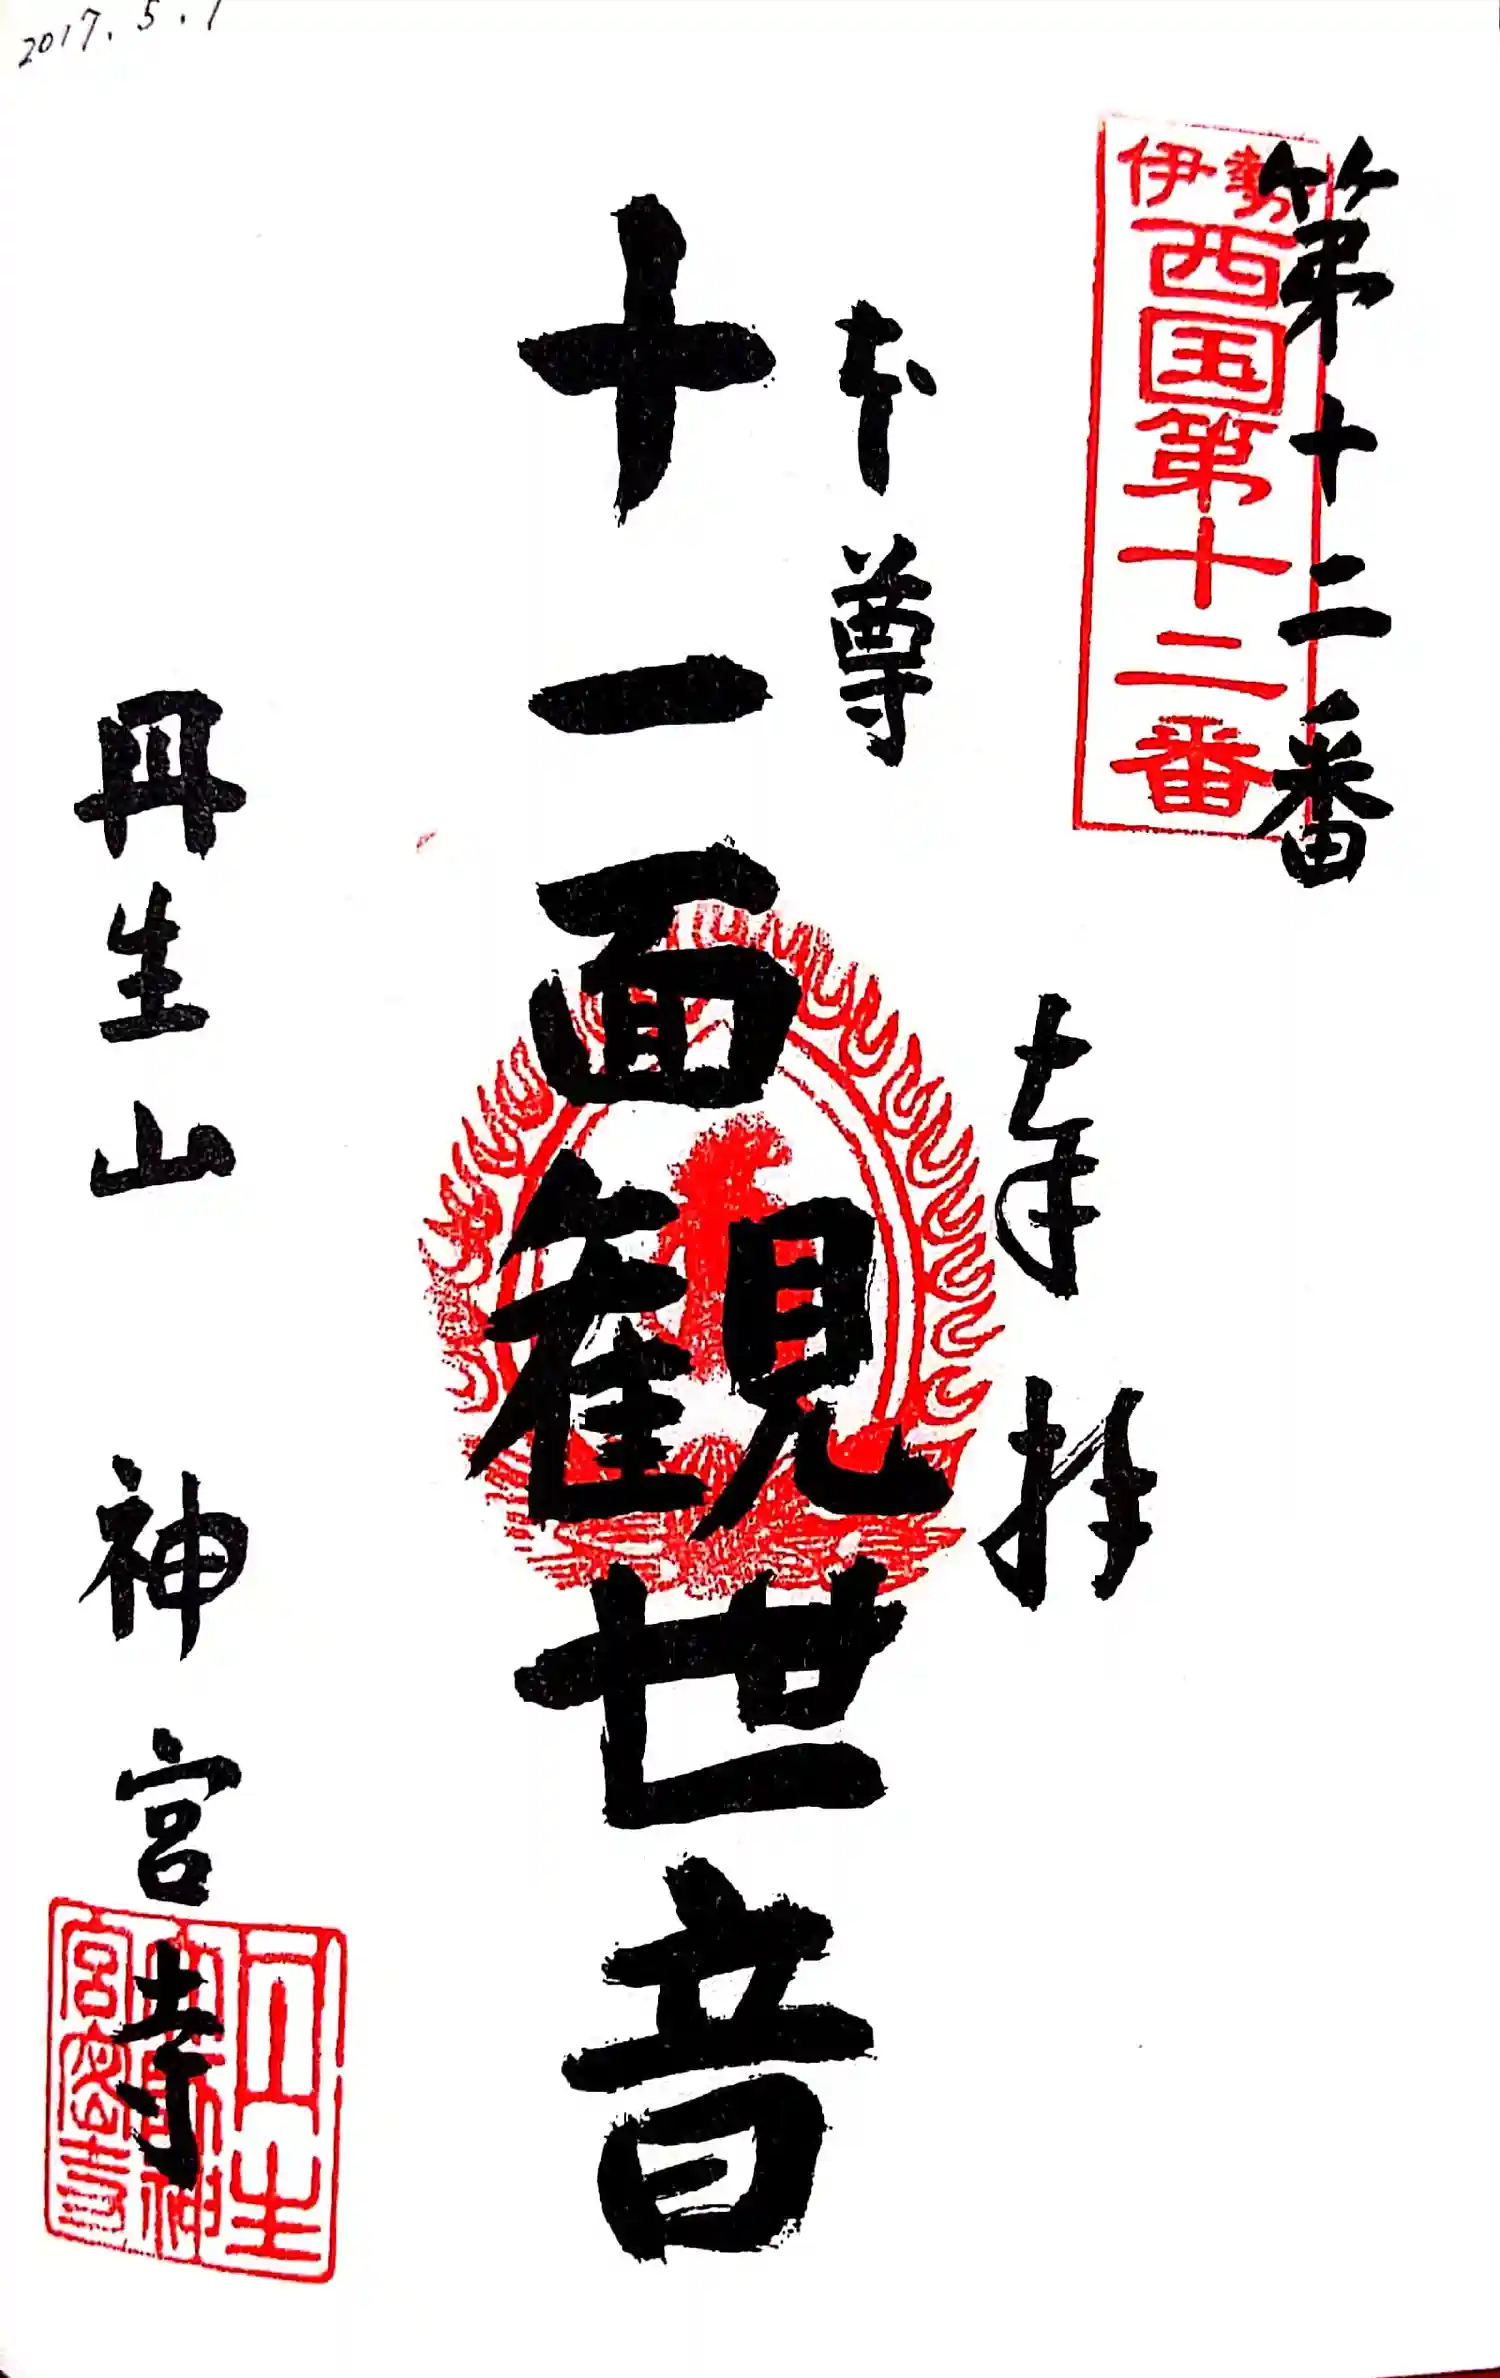 2017.5.1
第十二番
伊勢
西国第十二番
奉拝
本尊
十一面観世音
丹生山 神宮寺